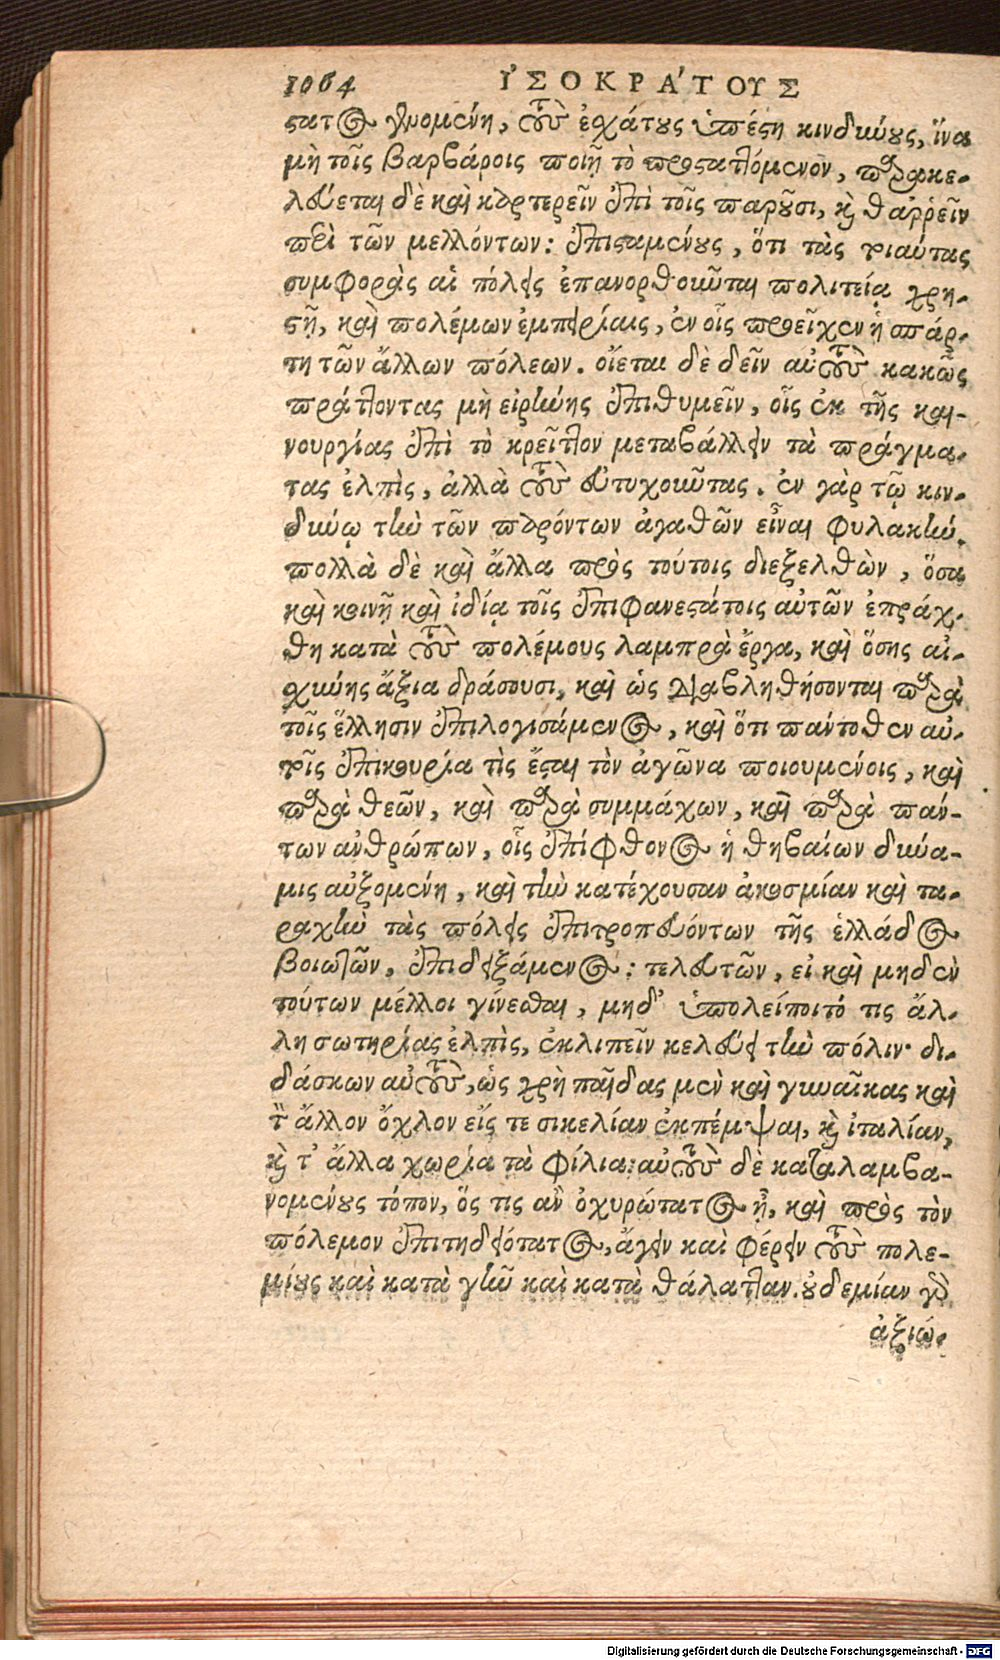 1064 ἸΣΟΚΡΆΤΟΥΣ
στατος γινομένη, τοὺς ἐσχάτους ὑπέστη κινδύνους, ἵνα
μὴ τοῖς βαρβάροις ποιῇ τὸ προσταττόμενον, παρακε-
λεύεται δὲ καὶ καρτερεῖν ἐπὶ τοῖς παροῦσι, καὶ θαῤῥεῖν
περὶ τῶν μελλόντων: ἐπισταμένους, ὅτι τὰς τοιαύτας
συμφορὰς αἱ πόλεις ἐπανορθοῦνται πολιτείᾳ χρη-
στῇ, καὶ πολέμων ἐμπειρίαις, ἐν οἷς προεῖχεν ἡ σπάρ-
τη τῶν ἄλλων πόλεων. οἴεται δὲ δεῖν αὐτοὺς κακῶς
πράττοντας μὴ εἰρήνης ἐπιθυμεῖν, οἷς ἐκ τῆς και-
νουργίας ἐπὶ τὸ κρεῖττον μεταβάλλειν τὰ πράγμα-
τας ἐλπὶς, ἀλλὰ τοὺς εὐτυχοῦντας. ἐν γὰρ τῷ κιν-
δύνῳ τὴν τῶν παρόντων ἀγαθῶν εἶναι φυλακήν.
πολλὰ δὲ καὶ ἄλλα πρὸς τούτοις διεξελθὼν, ὅσα
καὶ κοινῇ καὶ ἰδίᾳ τοῖς ἐπιφανεστάτοις αὐτῶν ἐπράχ-
θη κατὰ τοὺς πολέμους λαμπρὰ ἔργα, καὶ ὅσης αἰ-
σχύνης ἄξια δράσουσι, καὶ ὡς διαβληθήσονται παρὰ
τοῖς ἕλλησιν ἐπιλογισάμενος, καὶ ὅτι παντόθεν αὐ-
τοῖς ἐπικουρία τὶς ἔσται τὸν ἀγῶνα ποιουμένοις, καὶ
παρὰ θεῶν, καὶ παρὰ συμμάχων, καὶ παρὰ πάν-
των ἀνθρώπων, οἷς ἐπίφθονος ἡ θηβαίων δύνα-
μις αὐξομένη, καὶ τὴν κατέχουσαν ἀκοσμίαν καὶ τα-
ραχὴν τὰς πόλεις ἐπιτροπευόντων τῆς ἑλλάδος
βοιωτῶν, ἐπιδειξάμενος: τελευτῶν, εἰ καὶ μηδὲν
τούτων μέλλοι γίνεσθαι, μηδ' ὑπολείποιτό τις ἄλ-
λη σωτηρίας ἐλπὶς, ἐκλιπεῖν κελεύει τὴν πόλιν· δι-
δάσκων αὐτοὺς, ὡς χρὴ παῖδας μὲν καὶ γυναῖκας καὶ
τὸν ἄλλον ὄχλον εἴς τε σικελίαν ἐκπέμψαι, καὶ ἰταλίαν,
καὶ τ' ἄλλα χωρία τὰ φίλια: αὐτοὺς δὲ καταλαμβα-
νομένους τόπον, ὅς τις ἂν ὀχυρώτατος ᾖ, καὶ πρὸς τὸν
πόλεμον ἐπιτηδειότατος, ἄγειν καὶ φέρειν τοὺς πολε-
μίους καὶ κατὰ γῆν καὶ κατὰ θάλατταν. οὐδεμίαν γὰρ
ἀξιώ-
Digitalisierung gefördert durch die Deutsche Forschungsgemeinschaft - DFG